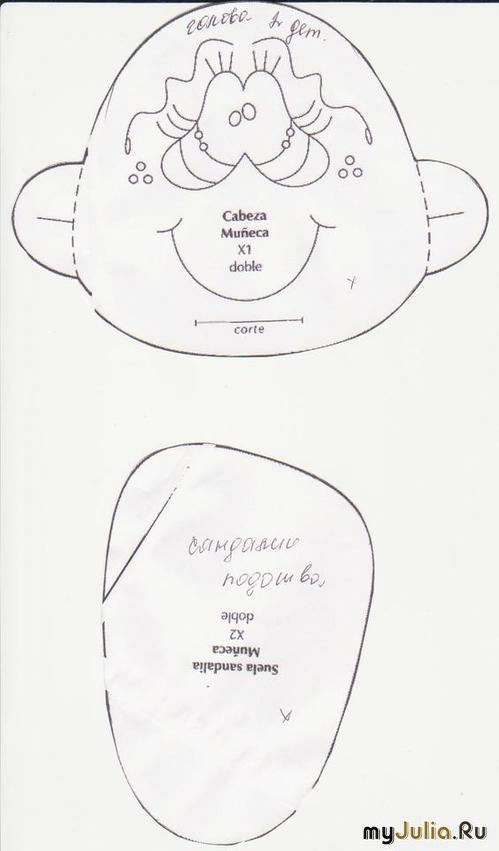 голова 2 дет.
Cabeza
Muñeca
X1
doble
corte
сандалии
подошва
doble
X2
Muñeca
Suela sandalia
myJulia.Ru